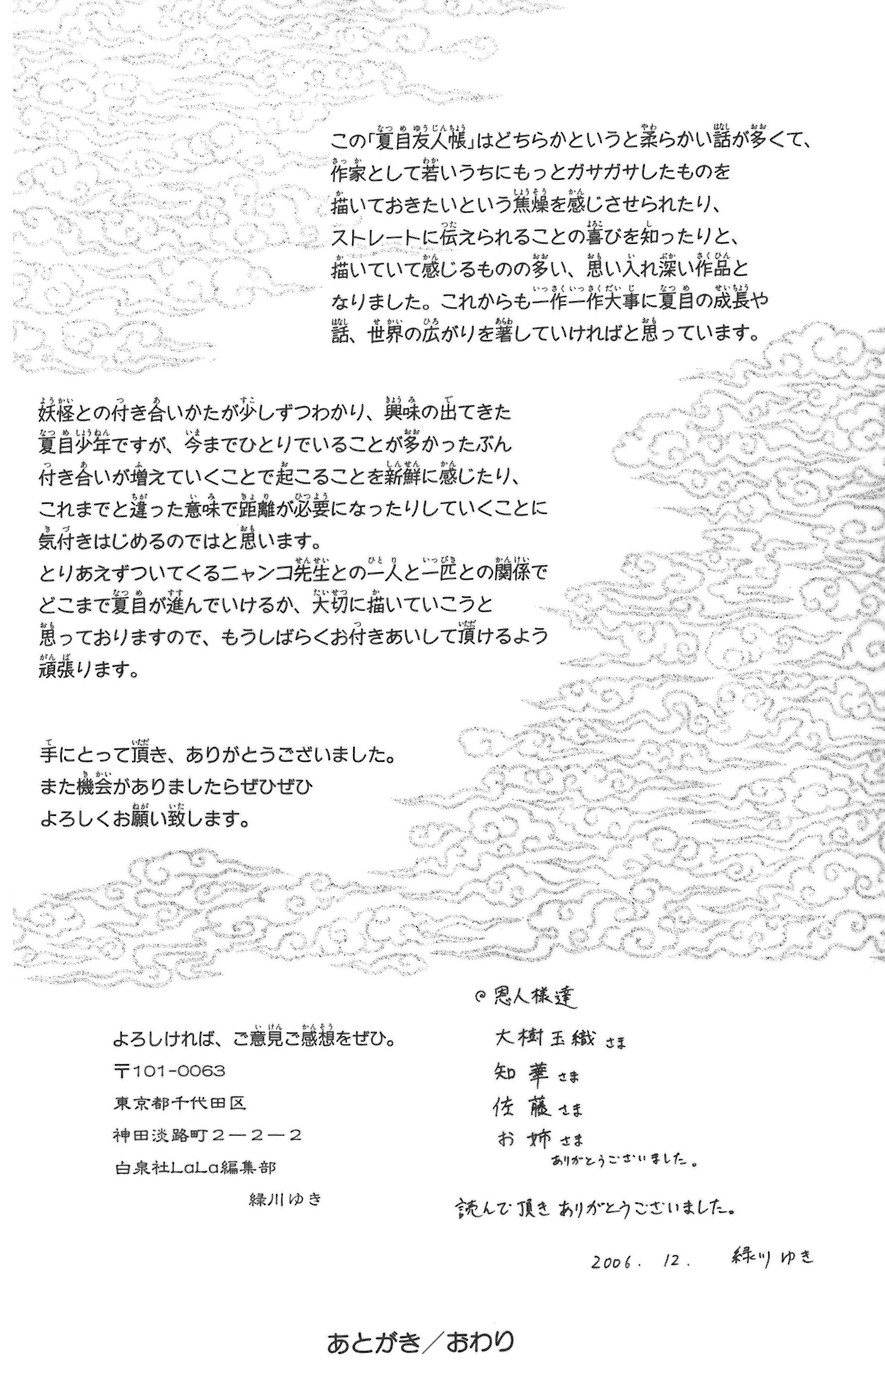 この「夏目友人帳」はどちらかというと柔らかい話が多くて、
作家として若いうちにもっとガサガサしたものを
描いておきたいという焦燥を感じさせられたり、
ストレートに伝えられることの喜びを知ったりと、
描いていて感じるものの多い、思い入れ深い作品と
なりました。これからも一作一作大事に夏目の成長や
話、世界の広がりを著していければと思っています。
妖怪との付き合いかたが少しずつわかり、興味の出てきた
夏目少年ですが、今までひとりでいることが多かったぶん
付き合いが増えていくことで起こることを新鮮に感じたり、
これまでと違った意味で距離が必要になったりしていくことに
気付きはじめるのではと思います。
とりあえずついてくるニャンコ先生との一人と一匹との関係で
どこまで夏目が進んでいけるか、大切に描いていこうと
思っておりますので、もうしばらくお付きあいして頂けるよう
頑張ります。
手にとって頂き、ありがとうございました。
また機会がありましたらぜひぜひ
よろしくお願い致します。
よろしければ、ご意見ご感想をぜひ。
〒101-0063
東京都千代田区
神田淡路町2−2−2
白泉社LaLa編集部
緑川ゆき
恩人様達
大樹玉織さま
知華さま
佐藤さま
お姉さま
ありがとうございました。
読んで頂きありがとうございました。
2006. 12. 緑川ゆき
あとがき／おわり